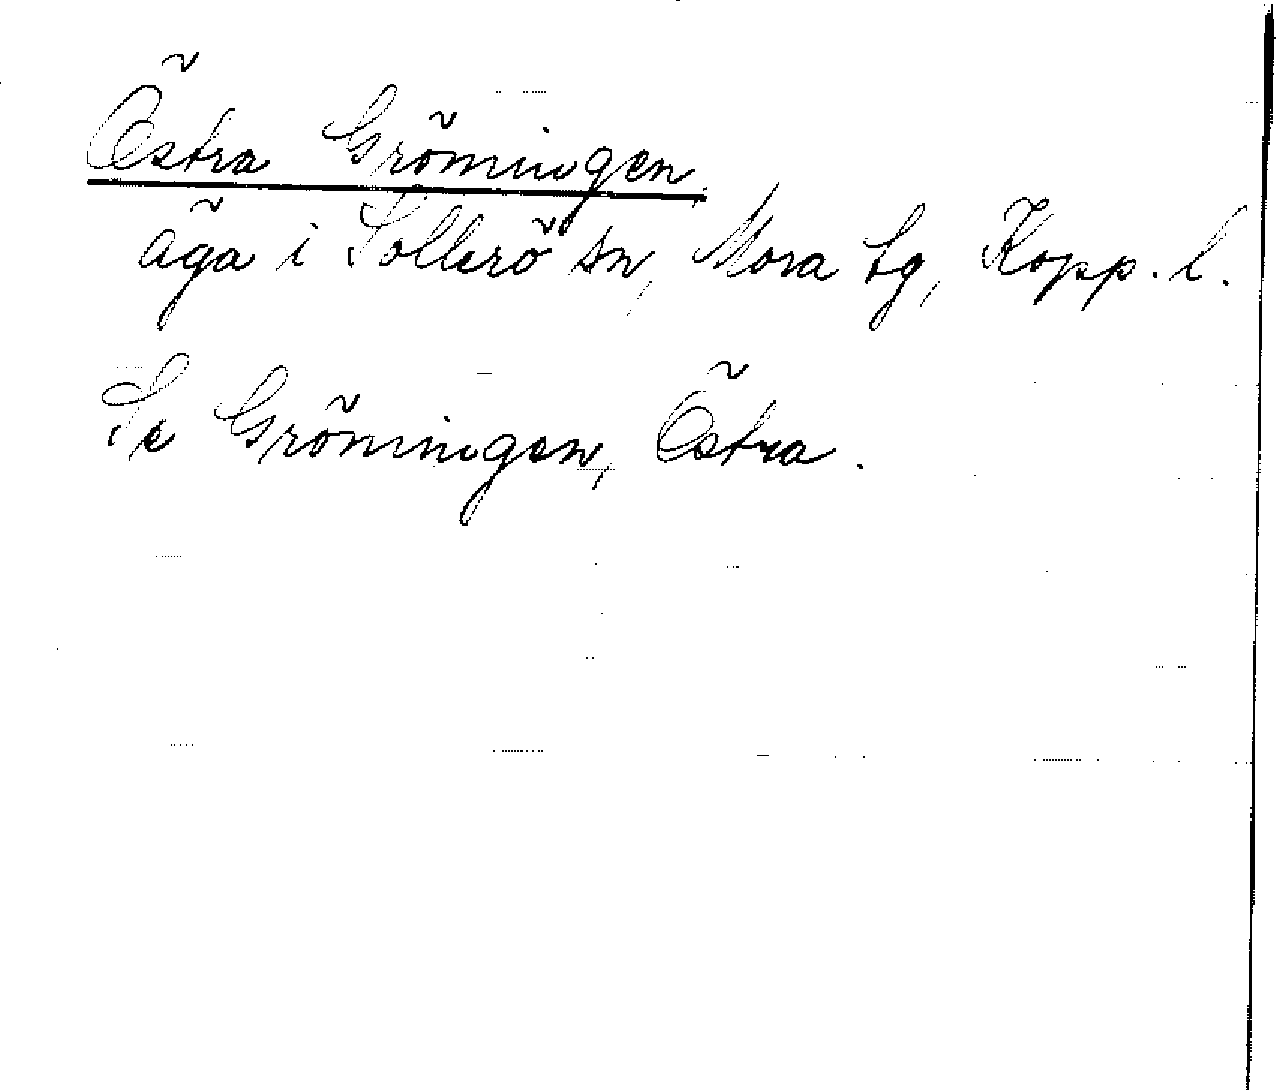 Östra Gröningen
äga i Sollerö sn, Mora tg, Kopp. l.
Se Gröningen, Östra.